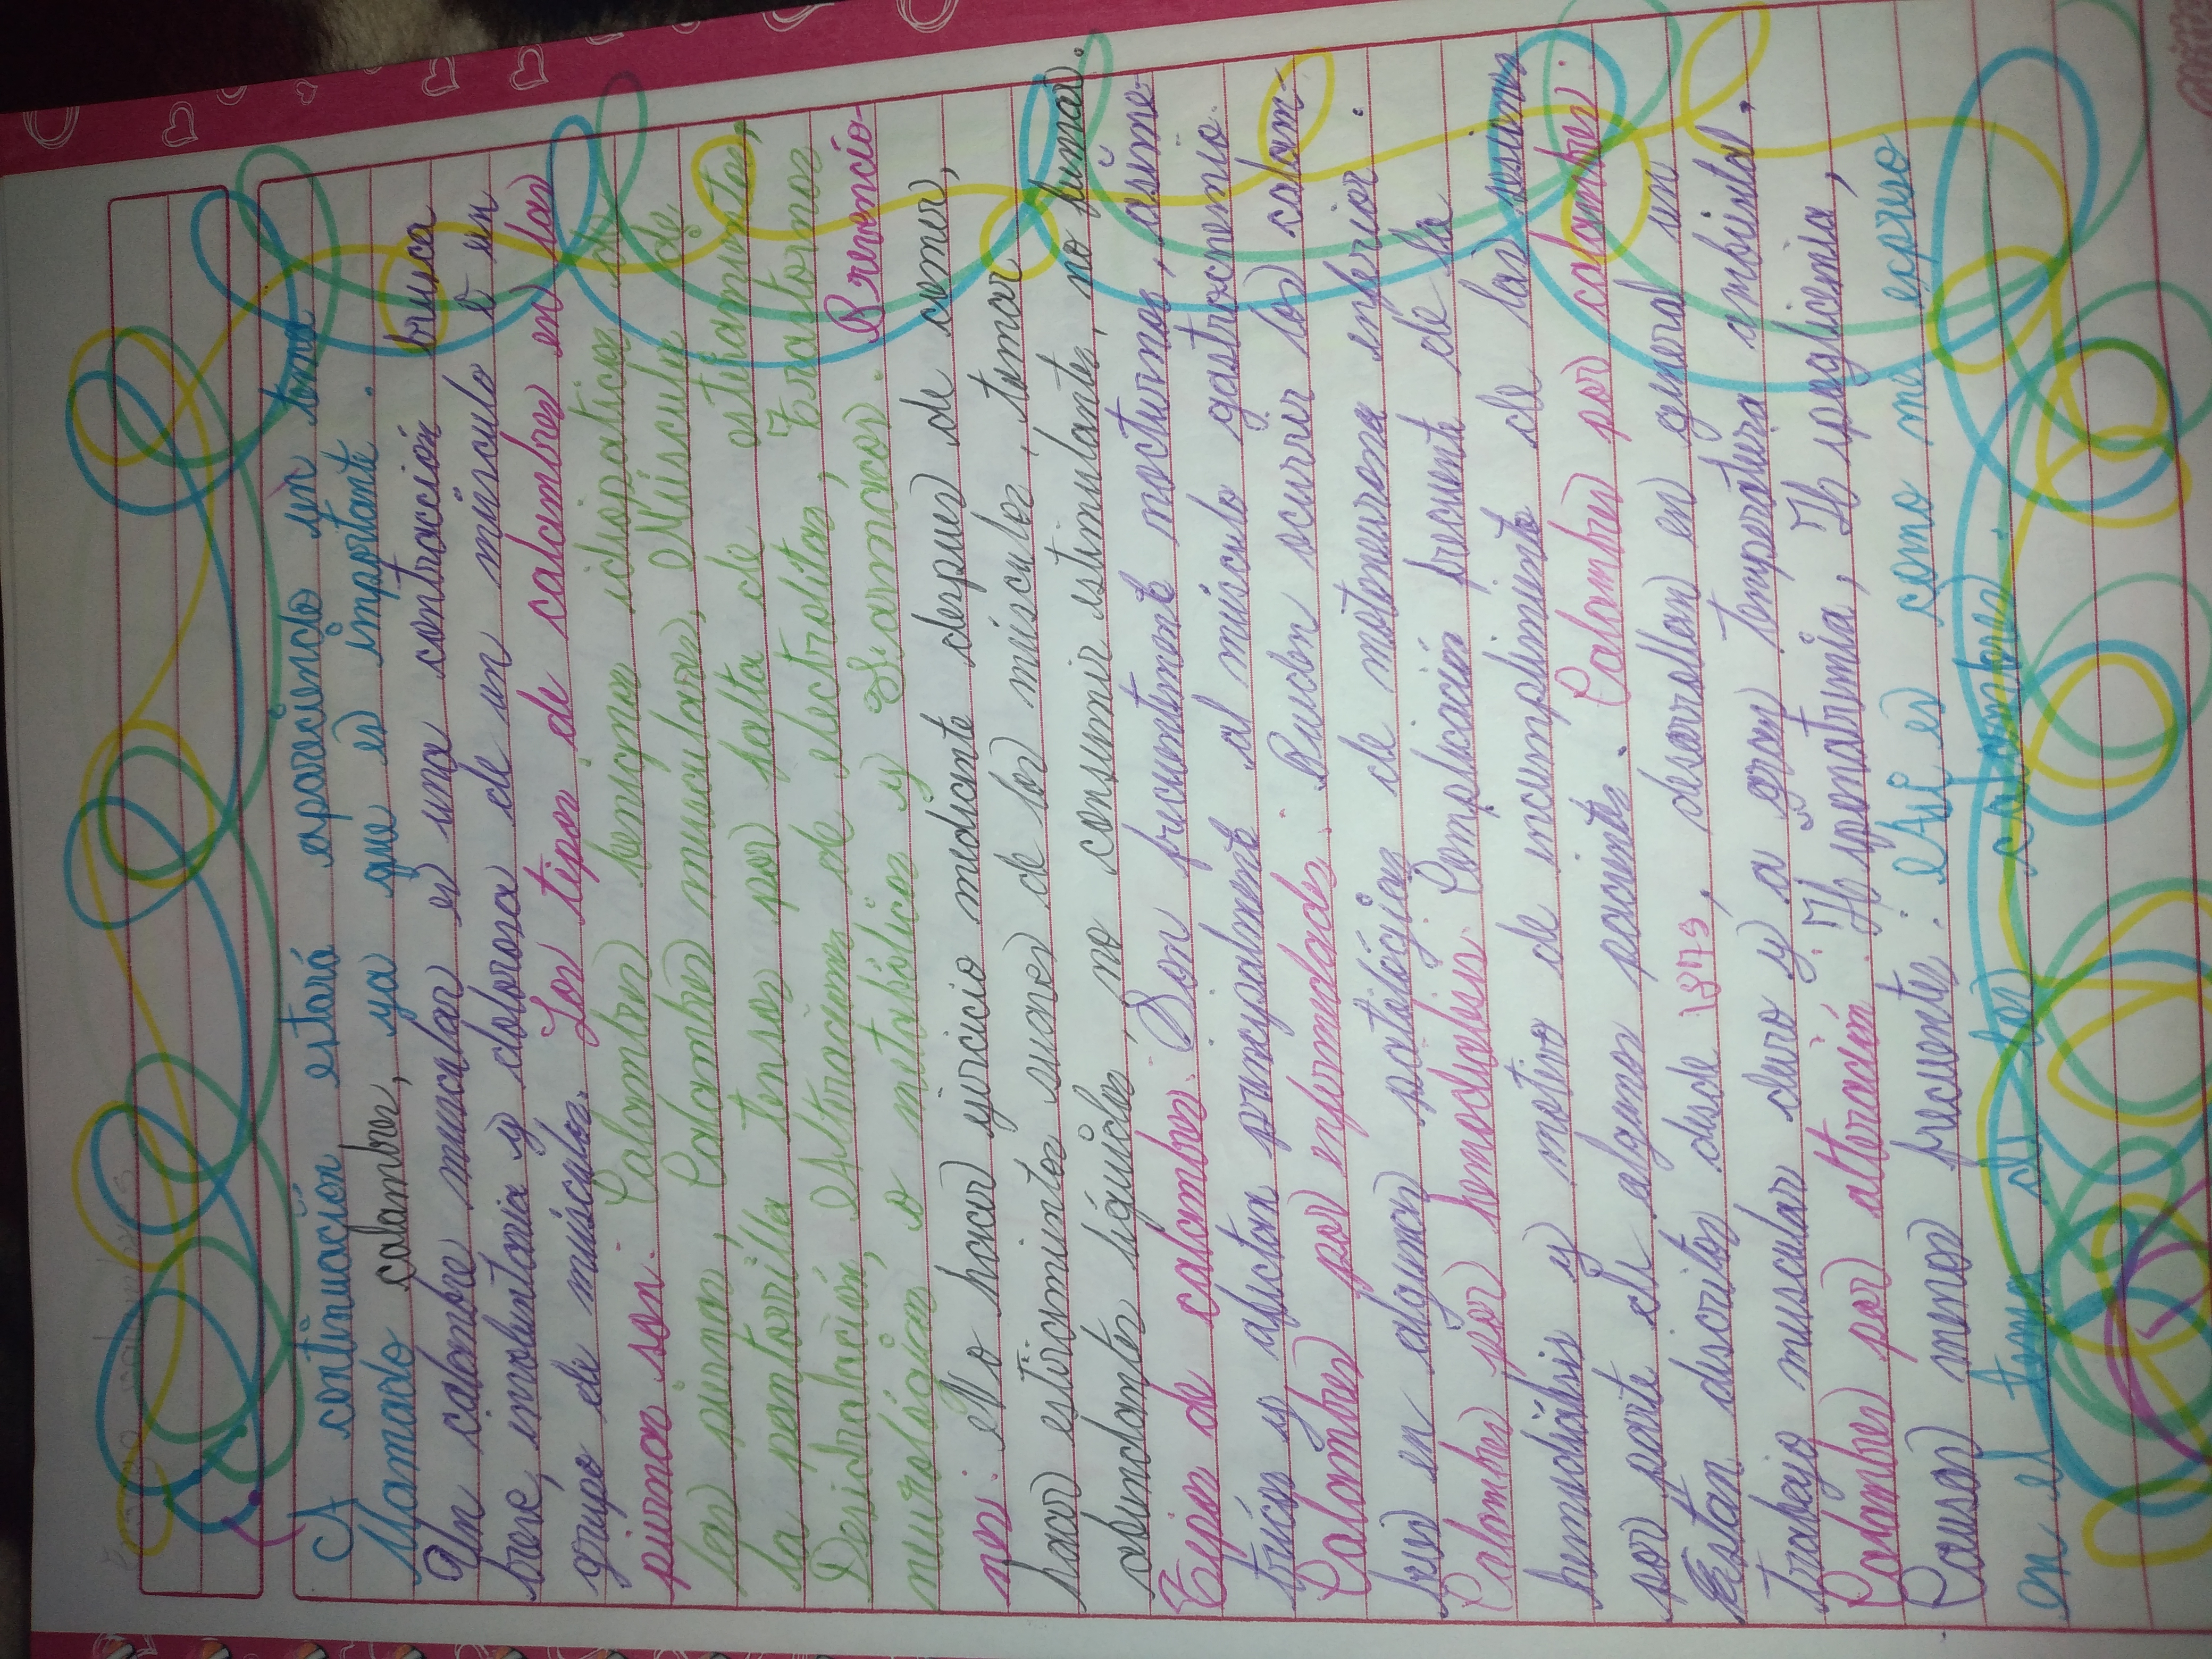 A continuación estará espareciendo un tema
llamado calambre, ya que es importante.
Un calambre muscular es una contracción brusca
breve, involuntaria y dolorosa de un músculo o un
grupo de músculos. Los tipos de calambres en las
piernas son: Calambres benignos idiopaticos de
las piernas, Calambres musculares, Músculo de
la pantorrilla tenso por falta de estiramientos,
Desidratación, Altraciones de electrolitos, Trastornos
neurológicos o metabólicos y Farmacos. Prevencio-
nes: No hacer ejercicio mediante despues de comer,
hacer estiramientos suaves de los músculos, tomar
abundantes líquidos, no consumir estimulantes, no fumar.
Tipos de calambres: Son frecuentemente nocturnos, asime-
tricos y afectan principalmente al músculo gastrocnemio.
Calambres por enfermedades: Pueden ocurrir los calam-
bres en algunas patológias de motoneurona inferior.
Calambres por hemodialisis: Complicación frecuente de la
hemodiálisis y motivo de incumplimiento de las sesiones
por parte de algunos pacientes. Calambres por calambres:
Estan descritos desde 1373, desarrollan en general un
trabajo muscular duro y a gran temperatura ambiental,
Calambres por alteración: Hiponatrmia, Hipoglicemia,
Causas menos frecuentes: Aśi es como me expreso
en el tema de los calambres.